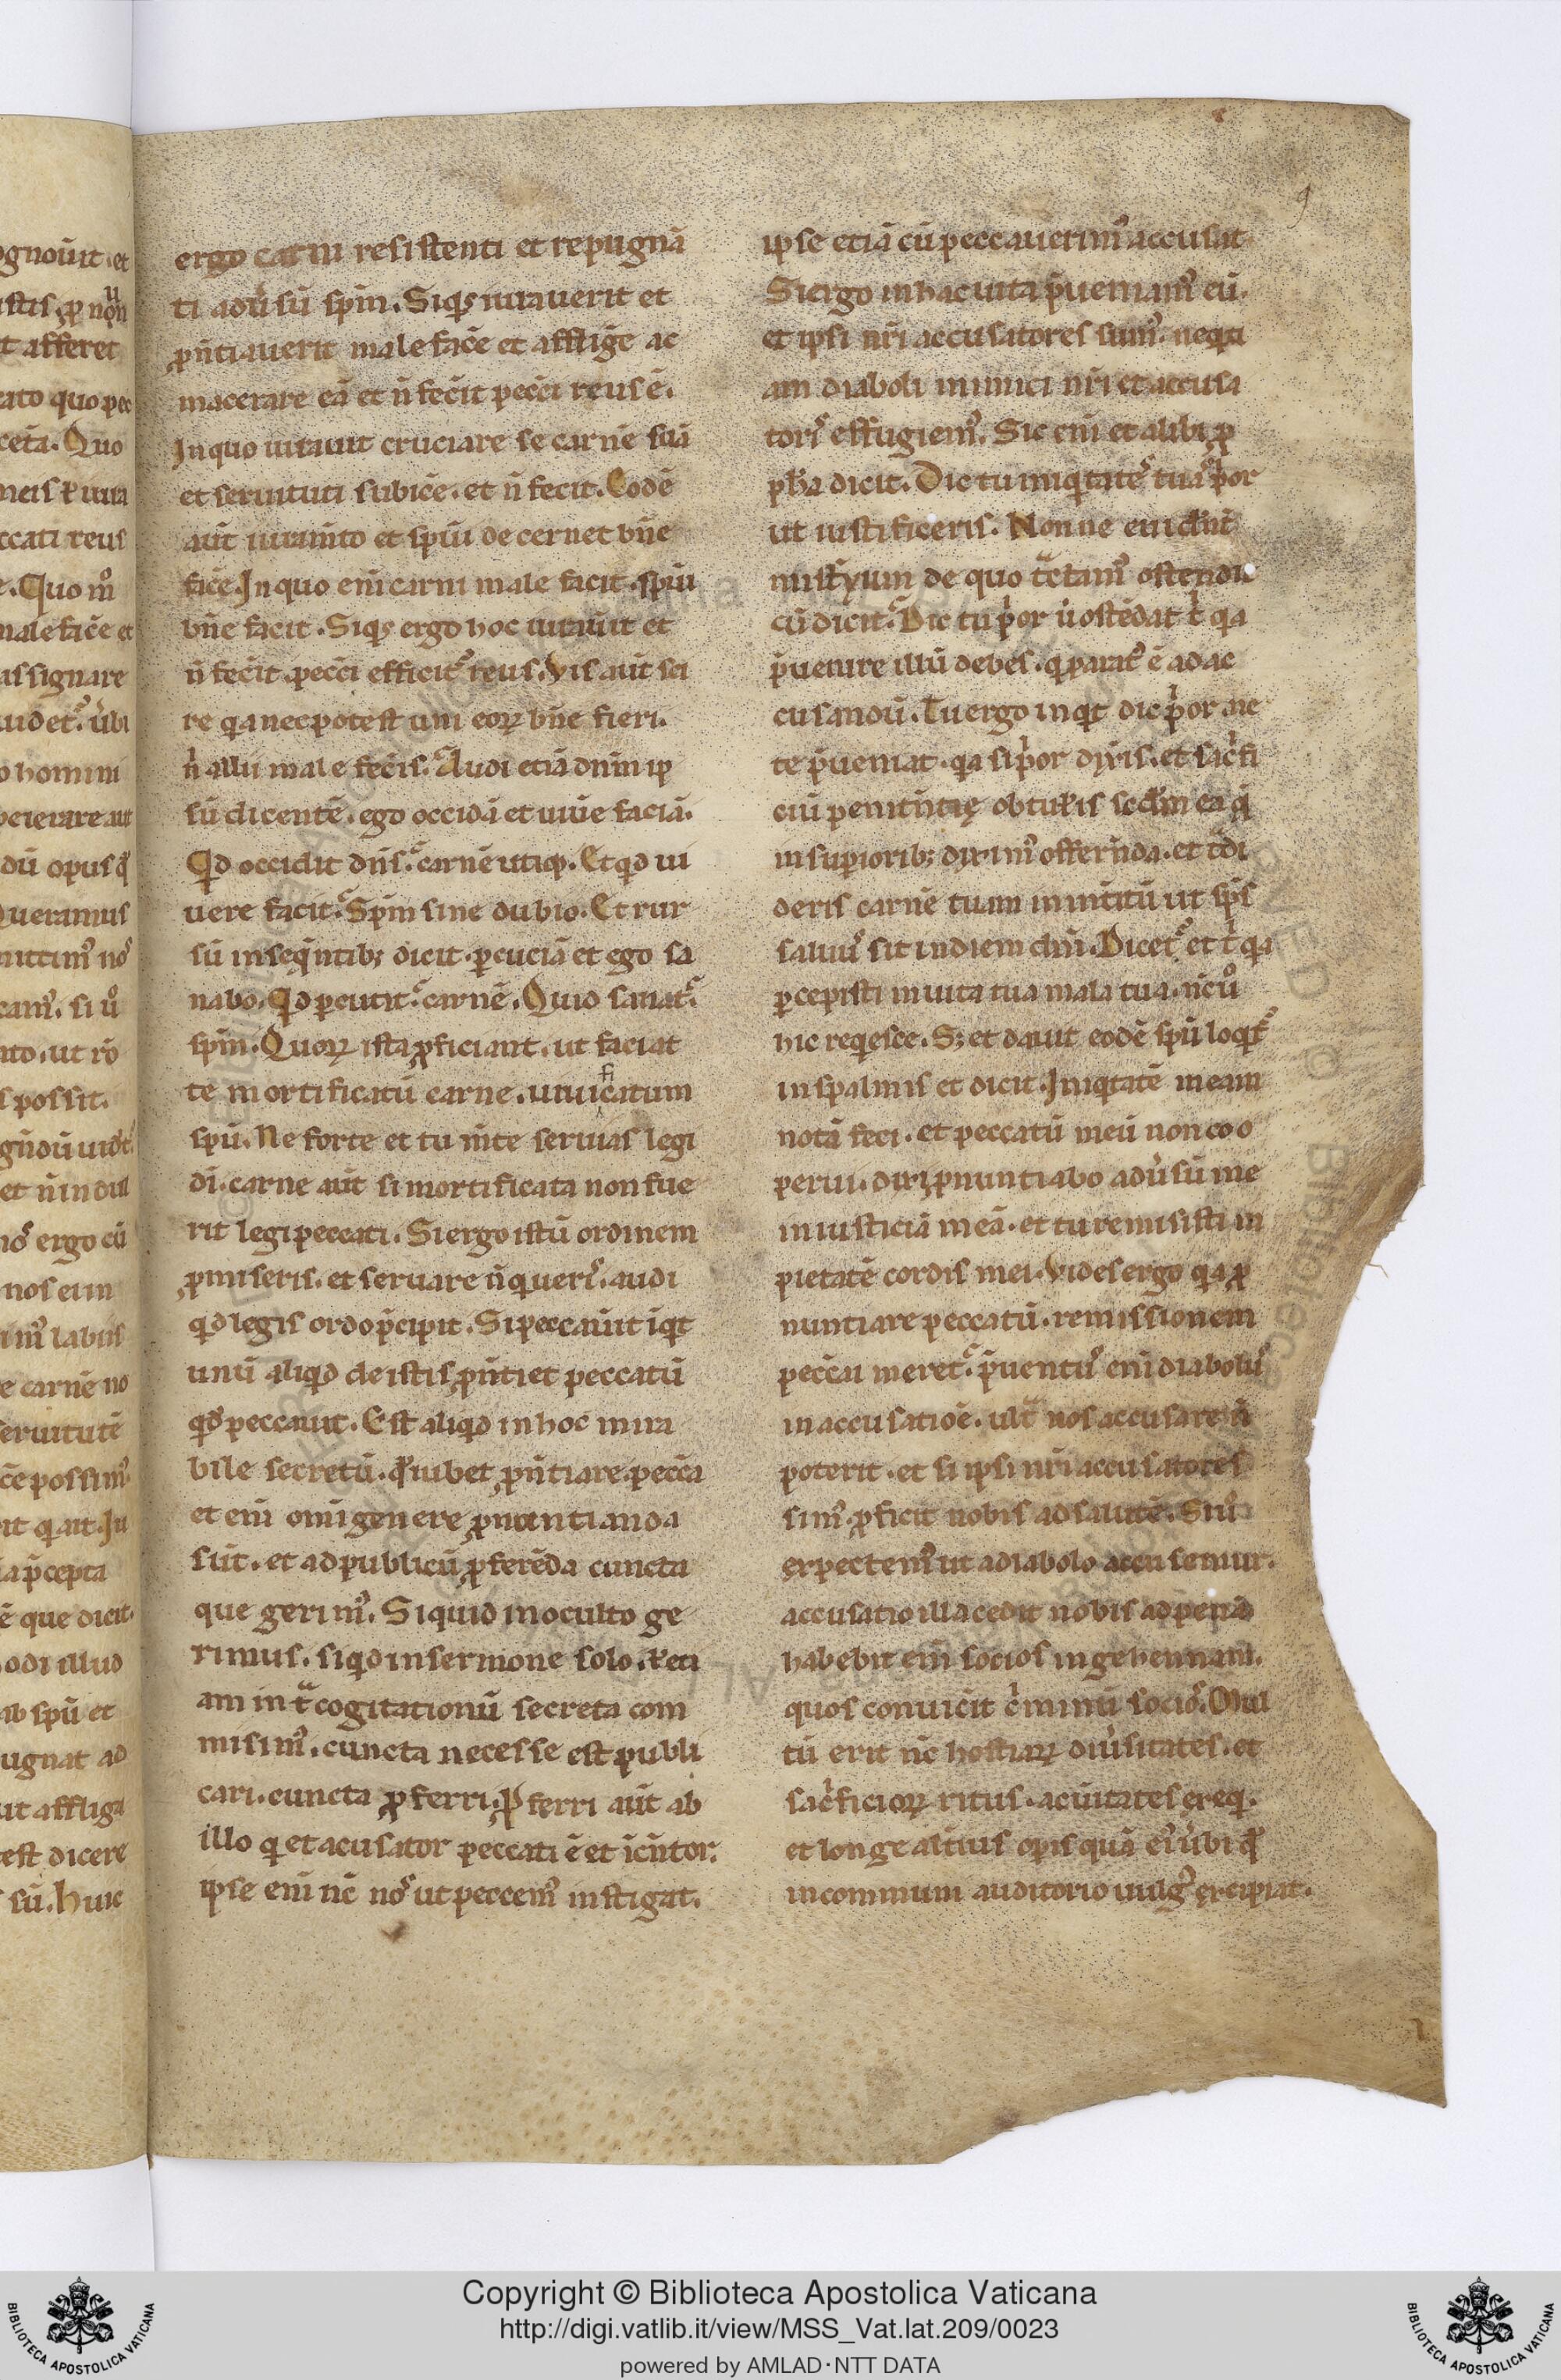 9
ergo carni resistenti et repugnā
ti adũsū sp̄m. Siq̥s iurauerit et
ꝓn̄tiauerit male fac̄e et affligē ac
macerare eā et n̄ fec̄it pecc̄i reus ē.
In quo iurauit cruciare se carnē suā
et seruituti subic̄e. et n̄ fecit. Eodē
aūt iuram̄to et sp̄iū decernet bn̄e
fac̄e. In quo eni carni male facit. sp̄iū
bn̄e facit. Siq̥s ergo hoc iurauit et
n̄ fec̄it pecc̄i efficit᷑ reus. Vis aūt sci
re qa nec potest uni eoꝝ bn̄e fieri.
n̍ alii male fec̄is. Audi etiā dn̄m ip
sū dicentē. ego occidā et uiu̅e faciā.
Qd occidit dn̄s. carnē utiq̥. Et qd ui
uere facit. Sp̄m sine dubio. Et rur
sū inseq̄ntib; dicit. ꝑcuciā et ego sa
nabo. Qd ꝑcutit. carnē. Quid sanat.
sp̄m. Quoꝝ ista ꝓficiant. ut faciat
te mortificatū carne. uiuificatum
sp̄u. Ne forte et tu m̄te seruias legi
dī. carne aūt si mortificata non fue
rit legi peccati. Si ergo istū ordinem
ꝓmiseris. et seruare n̄ queris᷑. audi
qd legis ordo p̄cipit. Si peccauit īqt
unū aliqd de istis ꝓn̄tiet peccatū
qd peccauit. Est aliqd in hoc mira
bile secretū. qd iubet ꝓn̄tiare pecc̄a
et eni omī genere ꝓnuntianda
sūt. et ad publicū ꝓferēda cuncta
que gerim᷒. Siquid in oculto ge
rimus. siqd in sermone solo. ł eti
am intᷓ cogitationū secreta com
misim᷒. cuncta necesse est publi
cari. cuncta ꝓferri. Ꝓferri aūt ab
illo q et acusator peccati ē et ic̄n̄tor.
ipse eni nc̄ nos᷒ ut peccem᷒ instigat.
ipse etiā cū peccauerim᷒ accusat
Si ergo in hac uita p̄ueniam᷒ eū.
et ipsi nr̄i accusatores sum᷒. neqti
am diaboli inimici nr̄i et accusa
toris᷒ effugiem᷒. Sic eni et alibi ꝓ
ph̄a dicit. Dic tu iniqtates᷒ tuas᷒ p̍or
ut iustificeris. Nonne euidn̄t
mist̄yum de quo tᷓctam᷒ ostendit
cū dicit. Dic tu p̍or ū ostēdat t̍ qa
p̄uenire illū debes. q parat᷒ ē ad ac
cusandū. Tu ergo inqt dic p̍or ne
te p̄ueniat. qa si p̍or dixis. et sac̍fi
ciū penitn̄tię obtul̍is sc̄dm ea q̄
in suꝑiorib; dixim᷒ offern̄da. et tᷓdi
deris carnē tuam in int̄itū ut sp̄s
saluus᷒ sit in diem dn̄i. Dicet᷑ et t̍ qa
ꝑcepisti in uita tua mala tua. nc̄ ů
hic reqesce. S; et dauit eodē sp̄u loqt᷑
in spalmis et dicit. Iniqtatē meam
notā feci. et peccatū meū non coo
perui. dixi ꝓnuntiabo adůsū me
iniusticiā meā. et tu remisisti in
pietatē cordis mei. Vides ergo qa ꝓ
nuntiare peccatū. remissionem
pecc̄ati meret᷑. p̄uentus᷒ eni diabolus᷒
in accusatioē. ultᷓ nos accusare n̄
poterit. et si ipsi nr̄i accusatores
sim᷒. ꝓficit nobis ad salutē. Sin᷒
expectem᷒ ut a diabolo accusemur.
accusatio illa cedit nobis ad penā
habebit eni socios in gehennam.
quos conuic̄it c̍minū socios᷒. Mul
tū erit nc̄ hostiaꝝ diůsitates. et
sac̍ficioꝝ ritus. ac uitates exeq.
et longe altius opis quā ei ůbi qd
in communi auditorio uulg᷒ excipiat.
Copyright © Biblioteca Apostolica Vaticana
http://digi.vatlib.it/view/MSS_Vat.lat.209/0023
powered by AMLAD·NTT DATA
BIBLIOTECA APOSTOLICA VATICANA
BIBLIOTECA APOSTOLICA VATICANA